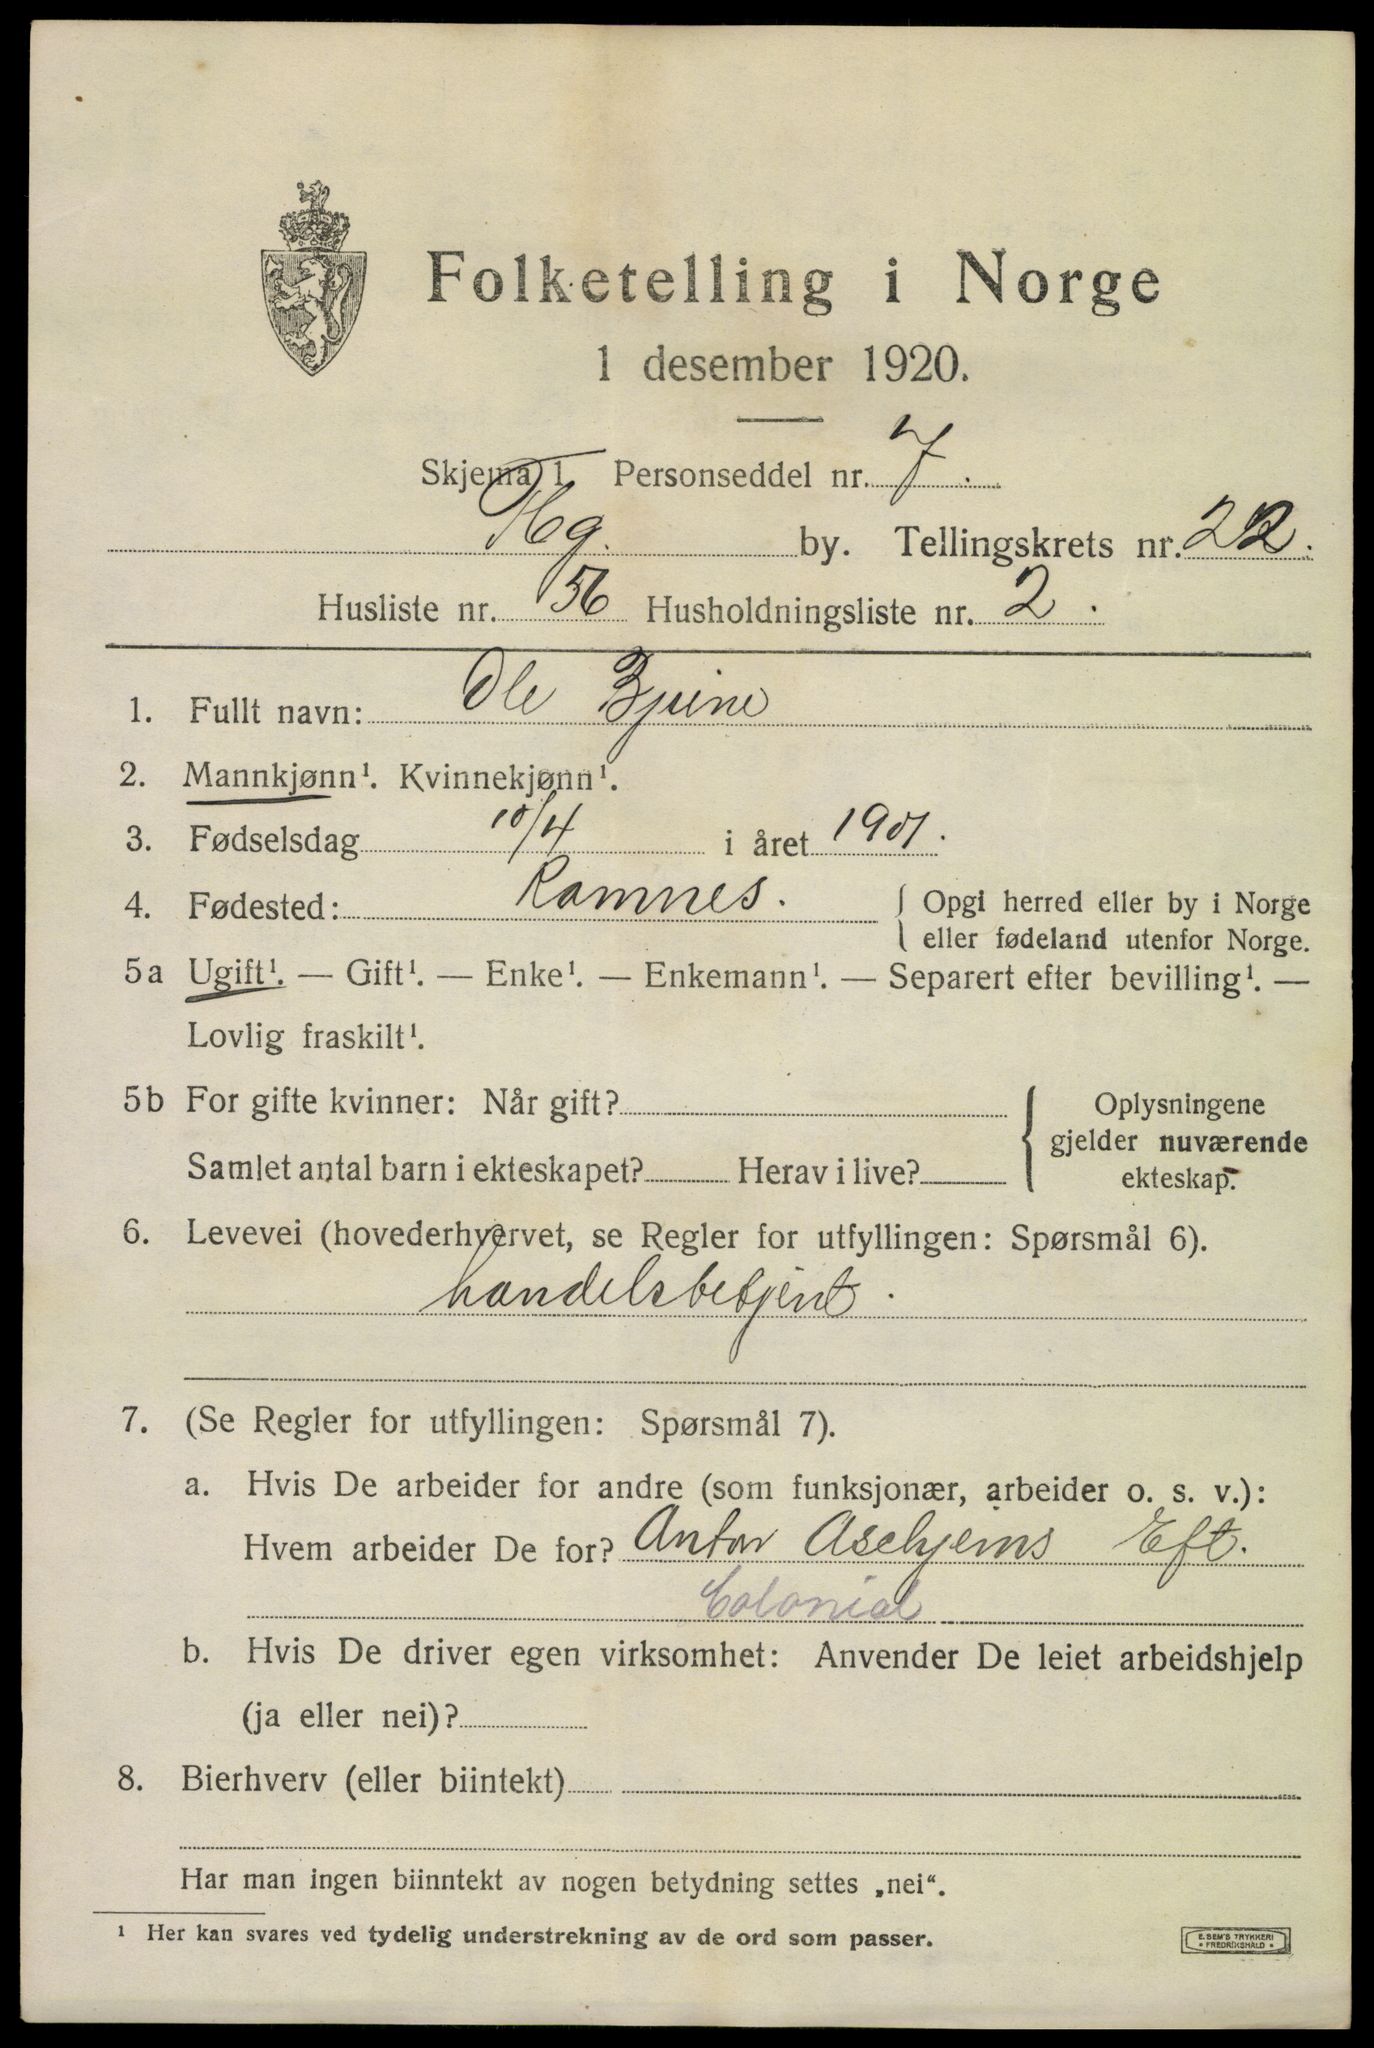 Folketelling i Norge
1 desember 1920.
Skjema 1 Personseddel nr. 7.
Tbg. by. Tellingskrets nr. 22.
Husliste nr. 56 Husholdningsliste nr. 2.
1. Fullt navn: Ole Bjuine
2. Mannkjønn¹. Kvinnekjønn¹.
3. Fødselsdag 10/4 i året 1901.
4. Fødested: Ramnes. { Opgi herred eller by i Norge
eller fødeland utenfor Norge.
5a Ugift¹. — Gift¹. — Enke¹. — Enkemann¹. — Separert efter bevilling¹. —
Lovlig fraskilt¹.
5b For gifte kvinner: Når gift? { Oplysningene
gjelder nuværende
Samlet antal barn i ekteskapet? Herav i live? ekteskap.
6. Levevei (hovederhvervet, se Regler for utfyllingen: Spørsmål 6).
handelsbetjent.
7. (Se Regler for utfyllingen: Spørsmål 7).
a. Hvis De arbeider for andre (som funksjonær, arbeider o. s. v.):
Hvem arbeider De for? Anton Aschjems Eft.
Colonial
b. Hvis De driver egen virksomhet: Anvender De leiet arbeidshjelp
(ja eller nei)?
8. Bierhverv (eller biintekt)
Har man ingen biinntekt av nogen betydning settes „nei“.
¹ Her kan svares ved tydelig understrekning av de ord som passer.
E. SEM'S TRYKKERI
• FREDRIKSHALD •